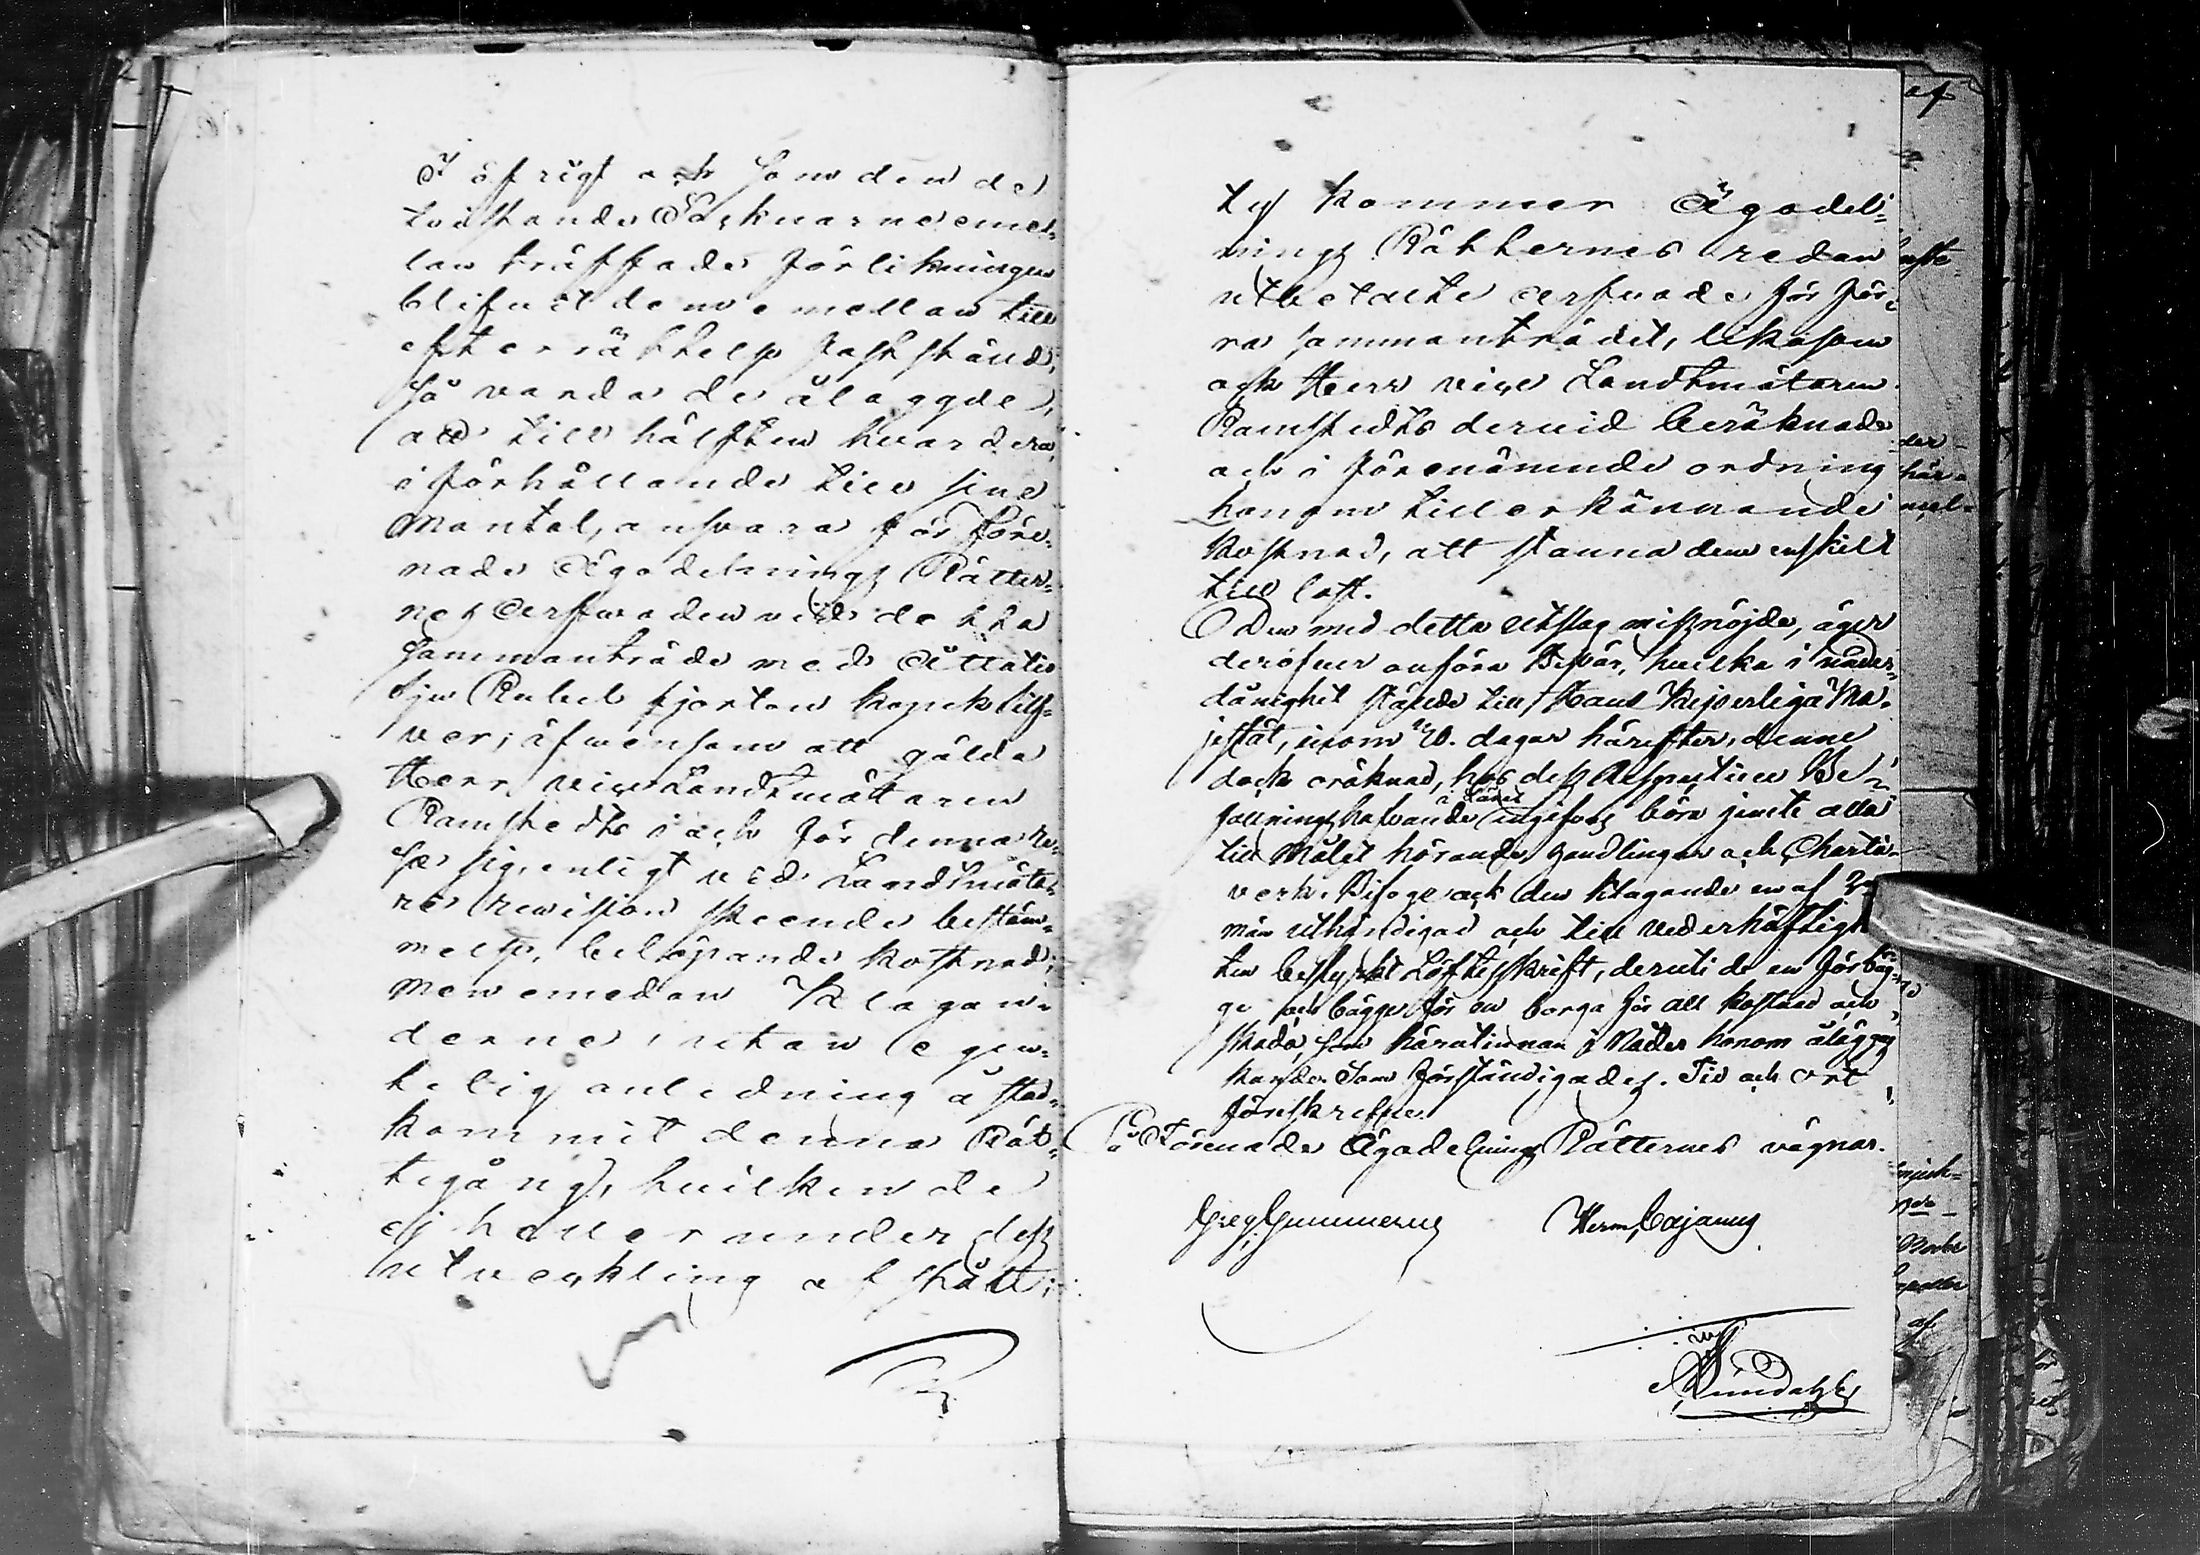 I öfrigt och som den de
tvistande Socknarne emel-
lan träffade förlikningen
blifvit dem emellan till
efterrättelse fastställd,
så varda de ålaggde,
att till hälften hvardera,
i förhållande till sine
Mantal, ansvara för före-
nade Ägodelnings Rätter-
nes arfvoden vid detta
sammanträde med Åttatio
sju Rubel fjorton kopek silf-
ver; äfvensom att gälda
Herr vice Landtmätaren
Ramstedts och för denna re-
sa sig, enligt vid Landtmäte-
rie revision skeende bestäm-
melse, belöpande kostnad;
men emedan Klagan-
derne, utan egen-
telig anledning åstad-
kommit denna Rät-
tegång, hvilken de
ej heller under dess
utveckling afstått;
ty kommer Ägodel-
nings Rätternes redan
utbetalte arfvode för för-
ra sammanträdet, likasom
ock Herr vice Landtmätaren
Ramstedts dervid beräknade
och i förenämnde ordning
honom tillerkännande
kostnad, att stanna dem enskilt
till last.
Den med detta utslag missnöjde, äger
deröfver anföra Besvär, hvilka i under-
dånighet ställde till Hans Kejserliga Ma-
jestät, inom dagar härefter, denne
dock oräknad, hos dess Respective Be-
fallningshafvande i Länet ingifvas böra jemte alla
till Målet hörande handlingar och Charte-
verk. Bifoge ock den klagande en af
män uthändigad och till vederhäftighe
ten bestyrkt Löftesskrift, deruti de en för bäg-
ge och bägge för en borga för all kostnad och
skada, som härutinnan i Nåder honom åläggas
kande. Som förständigades. Tid och ort
föreskrefne.
På Förenade Ägodelnings Rätternes vägnar.
Greg. Gummerus Herm. Cajanus